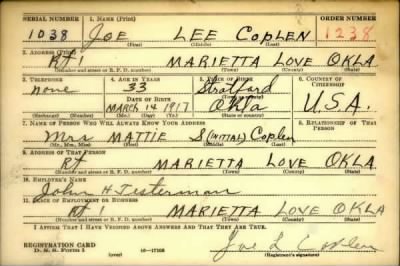 SERIAL NUMBER 1. NAME (Print) ORDER NUMBER
1038 JOE LEE COPLEN 1238
(First) (Middle) (Last)
2. ADDRESS (Print)
Rt 1 MARIETTA LOVE OKLA
(Number and street or R. F. D. number) (Town) (County) (State)
3. TELEPHONE 4. AGE IN YEARS 5. PLACE OF BIRTH 6. COUNTRY OF CITIZENSHIP
none 33 Stratford
DATE OF BIRTH
MARCH 14 1917 Okla U.S.A.
(Exchange) (Number) (Mo.) (Day) (Yr.) (State or country)
7. NAME OF PERSON WHO WILL ALWAYS KNOW YOUR ADDRESS 8. RELATIONSHIP OF THAT PERSON
Mrs MATTIE S (INITIAL) Coplen
(Mr., Mrs., Miss) (First) (Middle) (Last)
9. ADDRESS OF THAT PERSON
Rt MARIETTA LOVE OKLA
(Number and street or R. F. D. number) (Town) (County) (State)
10. EMPLOYER'S NAME
John H Testerman
11. PLACE OF EMPLOYMENT OR BUSINESS
Rt 1 MARIETTA LOVE OKLA
(Number and street or R. F. D. number) (Town) (County) (State)
I AFFIRM THAT I HAVE VERIFIED ABOVE ANSWERS AND THAT THEY ARE TRUE.
REGISTRATION CARD
D. S. S. Form 1 (over) Joe L Coplen
(Registrant's signature)